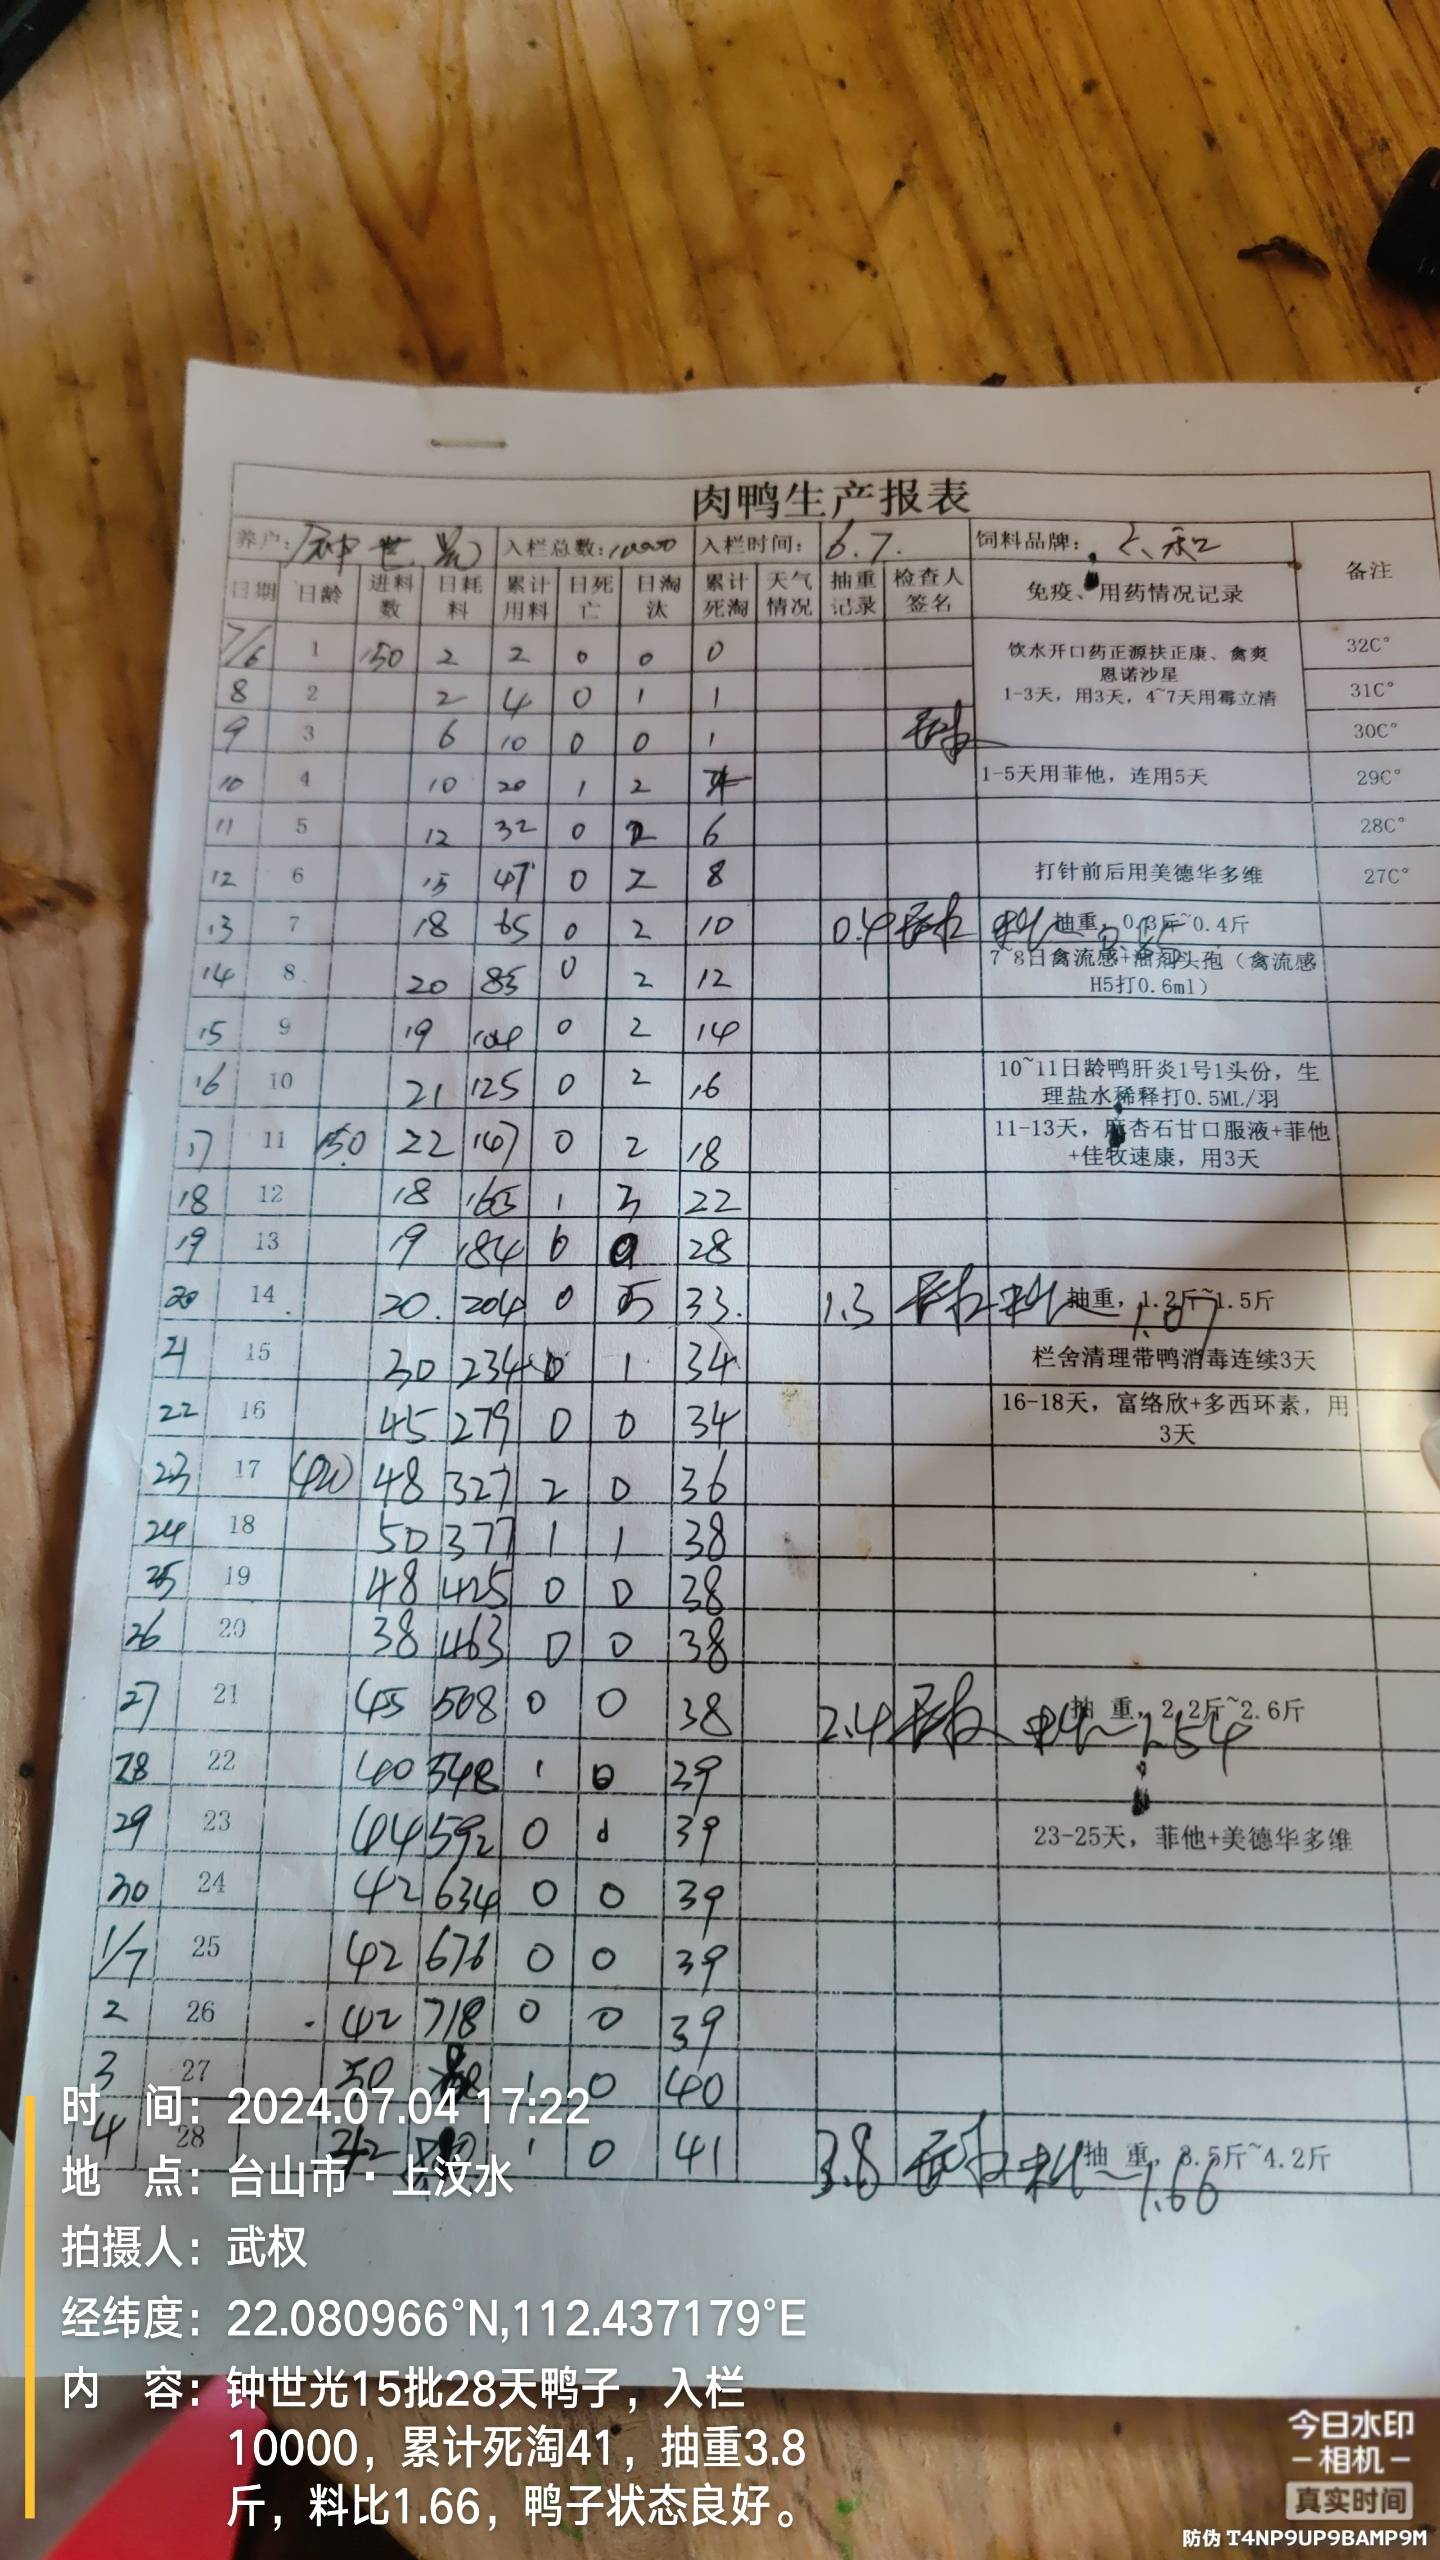 肉鸭生产报表
养户: 钟世光 入栏总数:10000 入栏时间: 6.7. 饲料品牌: 六和 备注
日期 日龄 进料数 日耗料 累计用料 日死亡 日淘汰 累计死淘 天气情况 抽重记录 检查人签名 免疫、用药情况记录
7/6 1 150 2 2 0 0 0 饮水开口药正源扶正康、禽爽 32C°
恩诺沙星
8 2 2 4 0 1 1 1-3天，用3天，4~7天用霉立清 31C°
9 3 6 10 0 0 1 30C°
10 4 10 20 1 2 1-5天用菲他，连用5天 29C°
11 5 12 32 0 2 6 28C°
12 6 15 47 0 2 8 打针前后用美德华多维 27C°
13 7 18 65 0 2 10 0.4 抽重，0.3斤~0.4斤
14 8 20 85 0 2 12 7~8日禽流感+油剂头孢（禽流感
H5打0.6ml）
15 9 19 104 0 2 14
16 10 21 125 0 2 16 10~11日龄鸭肝炎1号1头份，生
理盐水稀释打0.5ML/羽
17 11 150 22 147 0 2 18 11-13天，麻杏石甘口服液+菲他
+佳牧速康，用3天
18 12 18 165 1 3 22
19 13 19 184 6 0 28
20 14 20. 204 0 5 33. 1.3 料比 1.07 抽重，1.2斤~1.5斤
21 15 30 234 0 1 34 栏舍清理带鸭消毒连续3天
22 16 45 279 0 0 34 16-18天，富络欣+多西环素，用
3天
23 17 420 48 327 2 0 36
24 18 50 377 1 1 38
25 19 48 425 0 0 38
26 20 38 463 0 0 38
27 21 45 508 0 0 38 2.4 料比 1.54 抽 重，2.2斤~2.6斤
28 22 40 548 1 0 39
29 23 44 592 0 0 39 23-25天，菲他+美德华多维
30 24 42 634 0 0 39
1/7 25 42 676 0 0 39
2 26 42 718 0 0 39
3 27 50 1 0 40
4 28 1 0 41 3.8 料比 1.66 抽 重，3.5斤~4.2斤
时 间：2024.07.04 17:22
地 点：台山市·上汶水
拍摄人：武权
经纬度：22.080966°N,112.437179°E
内 容：钟世光15批28天鸭子，入栏
10000，累计死淘41，抽重3.8
斤，料比1.66，鸭子状态良好。
今日水印
相机
真实时间
防伪 T4NP9UP9BAMP9M